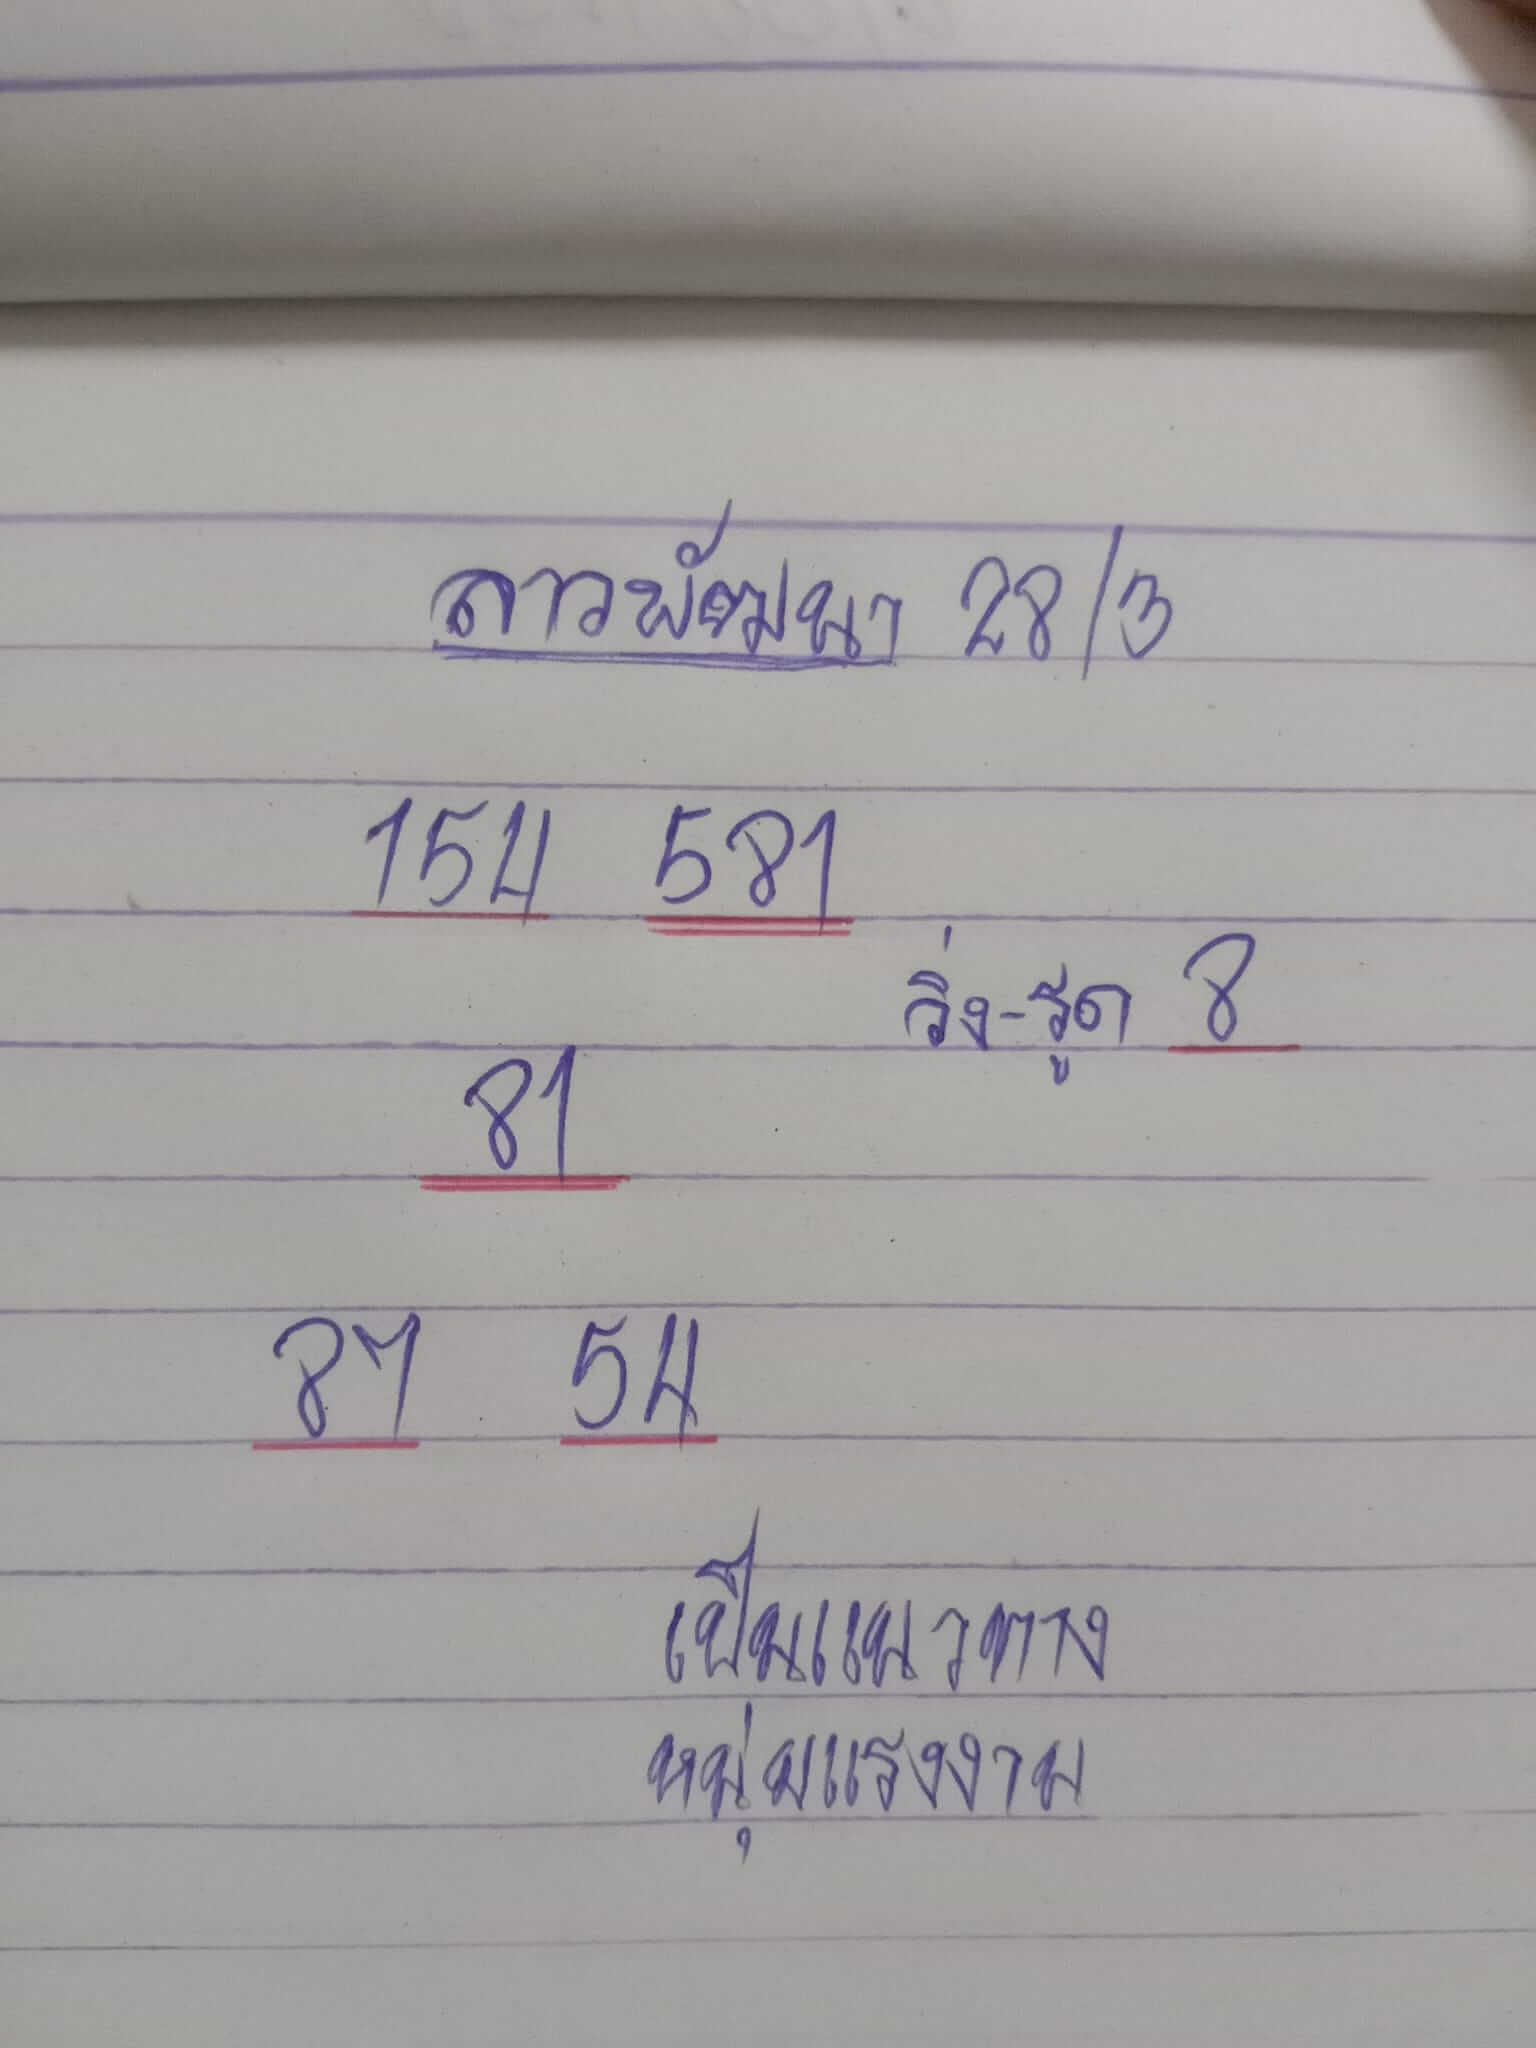 ลาวพัฒนา 28/3
154 581
วิ่ง-รูด 8
81
87 54
เป็นแนวทาง
หนุ่มแรงงาน